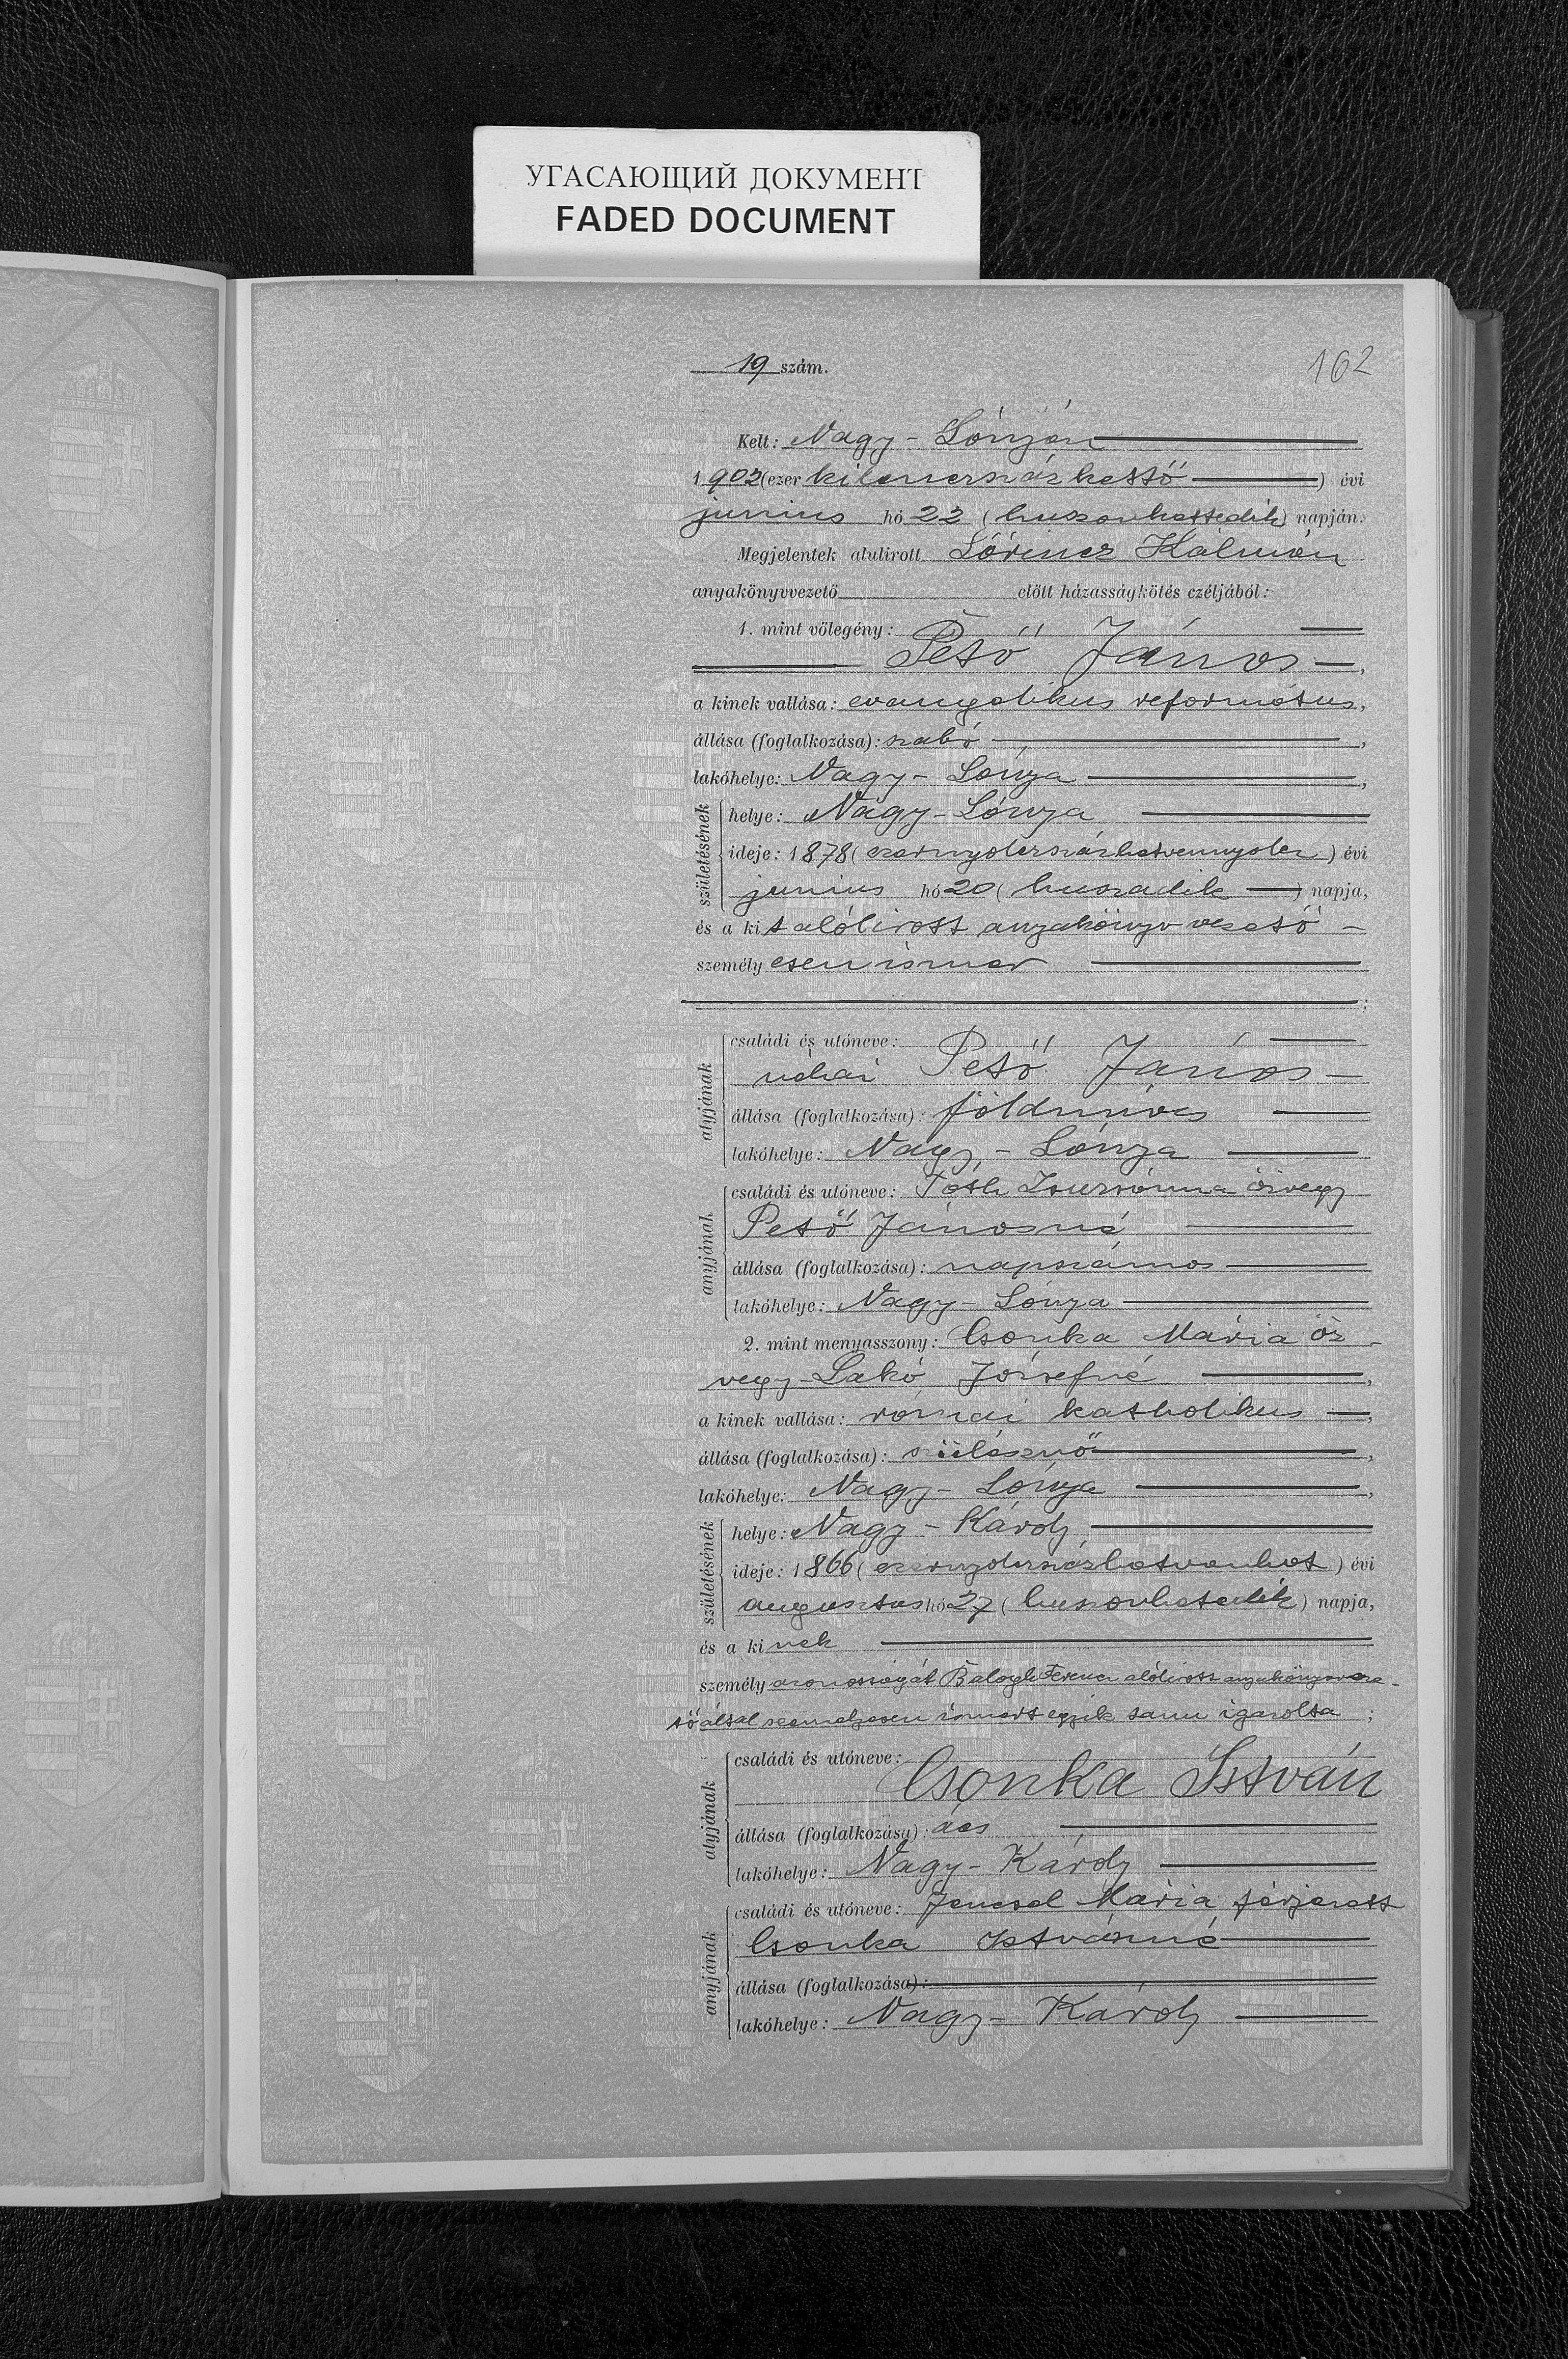 УГАСАЮЩИЙ ДОКУМЕНТ
FADED DOCUMENT
19 szám.
162
Kelt: Nagy-Lónyán
1902 (ezer kilenczszázkettő) évi
junius hó 22 (huszonkettedik) napján.
Megjelentek alulirott Lőrincz Kálmán
anyakönyvvezető előtt házasságkötés czéljából:
1. mint vőlegény:
Pető János,
a kinek vallása: evangelikus református,
állása (foglalkozása): szabó,
lakóhelye: Nagy-Lónya,
születésének
helye: Nagy-Lónya
ideje: 1878 (ezernyolczszázhetvennyolcz) évi
junius hó 20 (huszadik) napja,
és a kit alólirott anyakönyvvezető
személyesen ismer
:
atyjának
családi és utóneve:
néhai Pető János
állása (foglalkozása): földmüves
lakóhelye: Nagy-Lónya
anyjának
családi és utóneve: Tóth Zsuzsánna özvegy
Pető Jánosné
állása (foglalkozása): napszámos
lakóhelye: Nagy-Lónya
2. mint menyasszony: Csonka Mária öz-
vegy Lakó Józsefné,
a kinek vallása: római katholikus,
állása (foglalkozása): szülésznő,
lakóhelye: Nagy-Lónya,
születésének
helye: Nagy-Károly
ideje: 1866 (ezernyolczszázhatvanhat) évi
augusztus hó 27 (huszonhetedik) napja,
és a kinek
személyazonosságát Balogh Ferencz alólirott anyakönyvveze-
tő által személyesen ismert egyik tanu igazolta;
atyjának
családi és utóneve:
Csonka István
állása (foglalkozása): ács
lakóhelye: Nagy-Károly
anyjának
családi és utóneve: Mária férjezett
Csonka Istvánné
állása (foglalkozása):
lakóhelye: Nagy-Károly